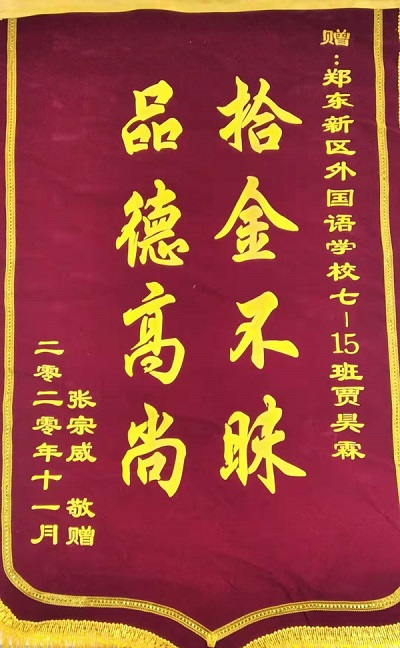 赠：郑东新区外国语学校七-15班贾昊霖
拾金不昧
品德高尚
张宗威 敬赠
二零二零年十一月